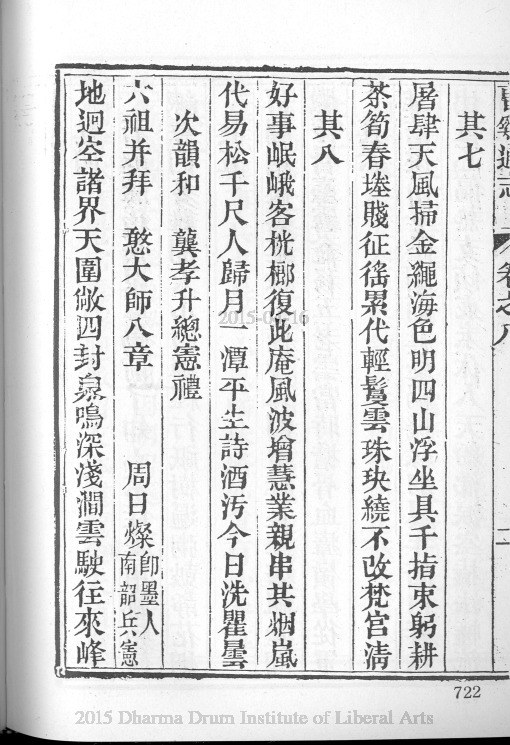 曹谿通志 卷之八
其七
屠肆天風掃金繩海色明四山浮坐具千指束躬耕
茶筍春堘賤征徭累代輕鬘雲珠玦繞不改梵宫清
其八
好事岷峨客桄榔復此庵風波增慧業親串共烟嵐
代易松千尺人歸月一潭平生詩酒汚今日洗瞿曇
次韻和 龔孝升總憲禮
六祖并拜 憨大師八章 周日燦 即墨人 南韶兵憲
地迥空諸界天圍敞四封泉鳴深淺澗雲駛徃來峰
722
2015-06-16
2015 Dharma Drum Institute of Liberal Arts